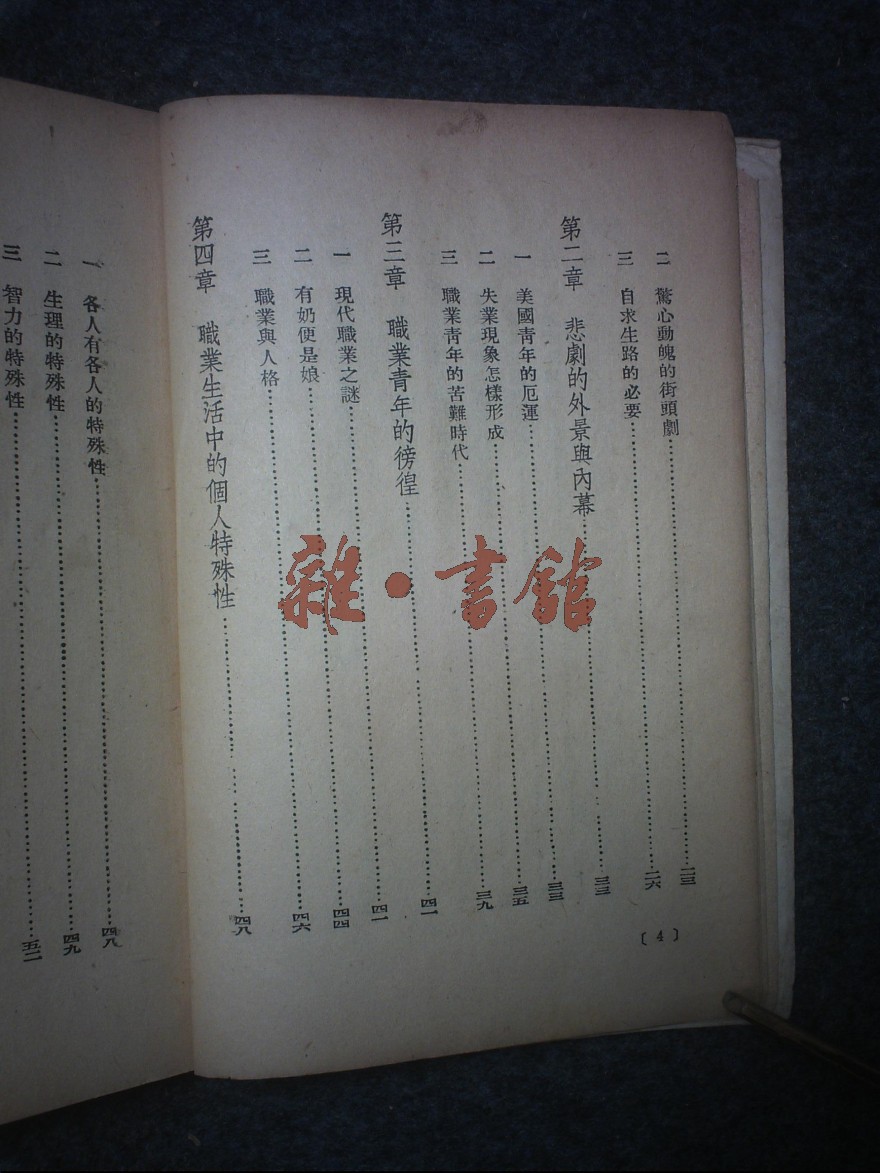 二 驚心動魄的街頭劇 二三
三 自求生路的必要 二六
第二章 悲劇的外景與內幕 三三
一 美國青年的厄運 三三
二 失業現象怎樣形成 三五
三 職業青年的苦難時代 三九
第三章 職業青年的徬徨 四一
一 現代職業之謎 四一
二 有奶便是娘 四四
三 職業與人格 四六
第四章 職業生活中的個人特殊性 四八
〔4〕
一 各人有各人的特殊性 四八
二 生理的特殊性 四九
三 智力的特殊性 五二
雜·書館